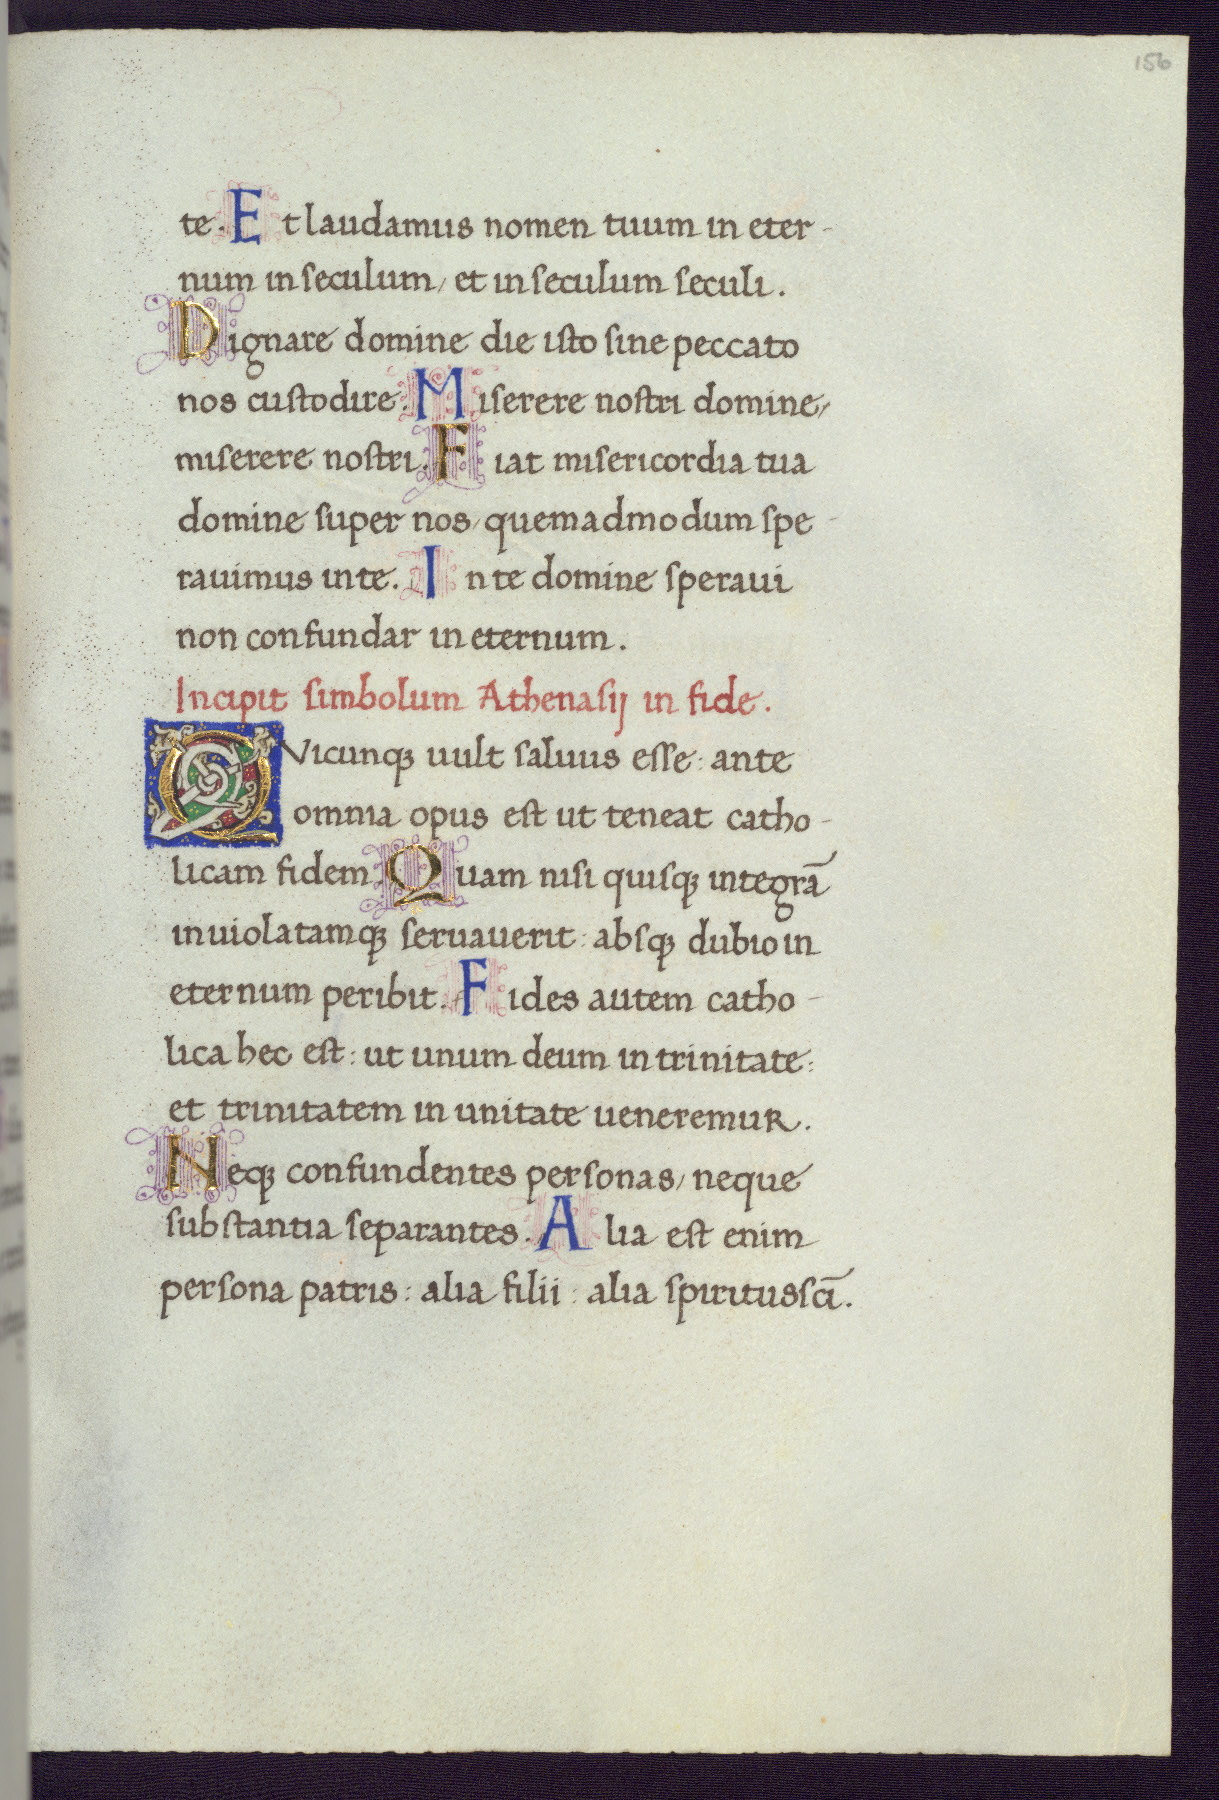 156
te. Et laudamus nomen tuum in eter-
num in seculum/ et in seculum seculi.
Dignare domine die isto sine peccato
nos custodire. Miserere nostri domine/
miserere nostri. Fiat misericordia tua
domine super nos/ quemadmodum spe-
rauimus in te. In te domine speraui
non confundar in eternum.
Incipit simbolum Athenasij in fide.
QVicunqꝫ uult saluus esse: ante
omnia opus est ut teneat catho-
licam fidem. Quam nisi quisqꝫ integrā
inuiolatamqꝫ seruauerit: absqꝫ dubio in
eternum peribit. Fides autem catho-
lica hec est: ut unum deum in trinitate:
et trinitatem in unitate ueneremur.
Neqꝫ confundentes personas/ neque
substantia separantes. Alia est enim
persona patris: alia filii: alia spiritus scī.